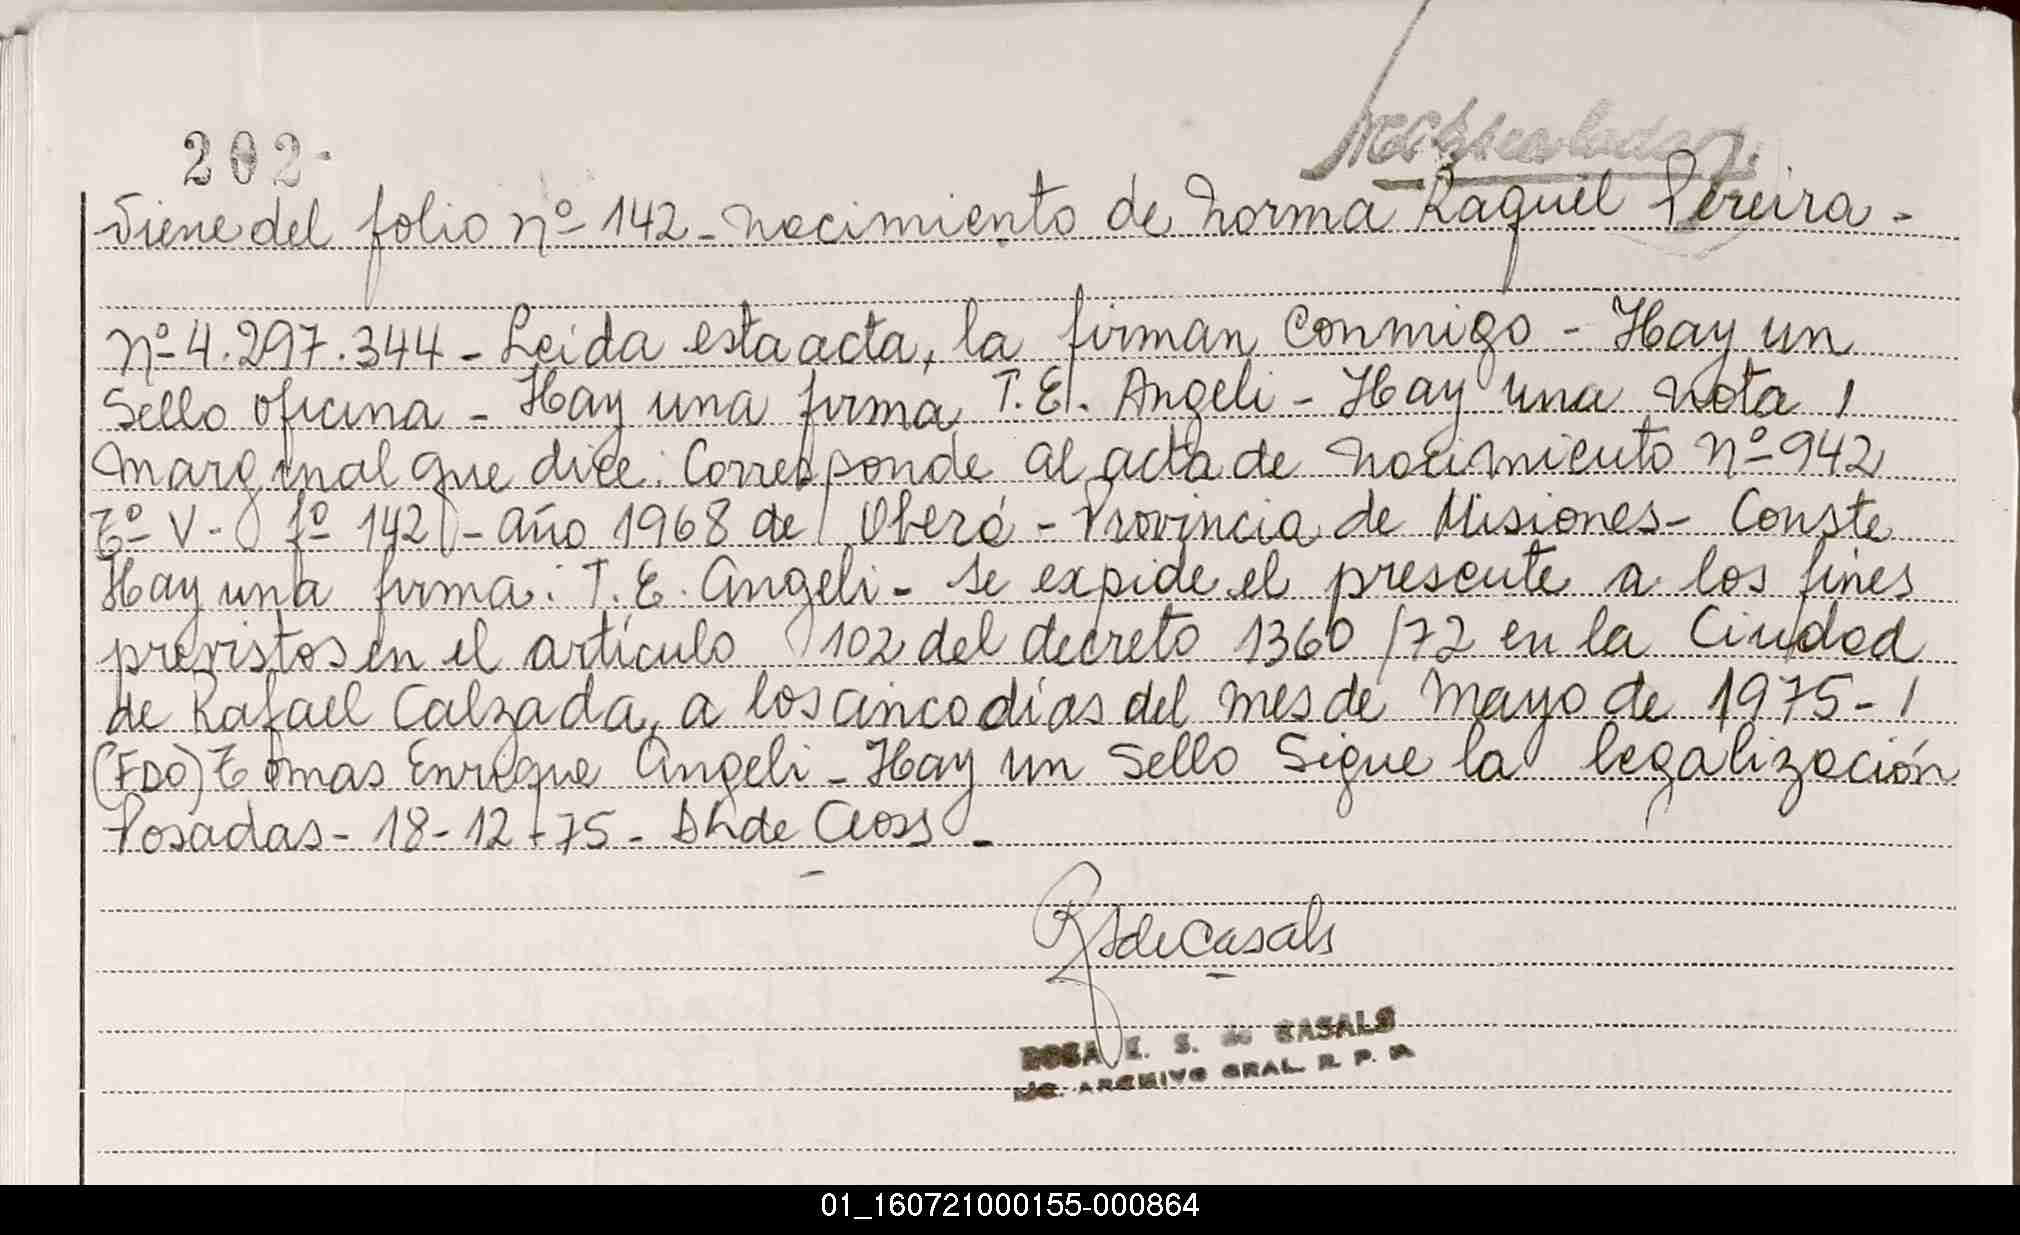 202-
Viene del folio nº 142 - nacimiento de Norma Raquel Pereira -
nº 4.297.344 - Leída esta acta, la firman Conmigo - Hay un
Sello oficina - Hay una firma T. E. Angeli - Hay una nota /
marginal que dice: Corresponde al acta de nacimiento nº 942
Tº V - fº 142 - año 1968 de Oberá - Provincia de Misiones - Conste
Hay una firma: T. E. Angeli - Se expide el presente a los fines
previstos en el artículo 102 del decreto 1360/72 en la Ciudad
de Rafael Calzada, a los cinco días del mes de Mayo de 1975 - /
(FDO) Tomas Enrique Angeli - Hay un Sello Sigue la legalización
Posadas - 18-12-75 - de
de Casals
ROSA E. S. de CASALS
ARCHIVO GRAL. R. P. M.
01_160721000155-000864